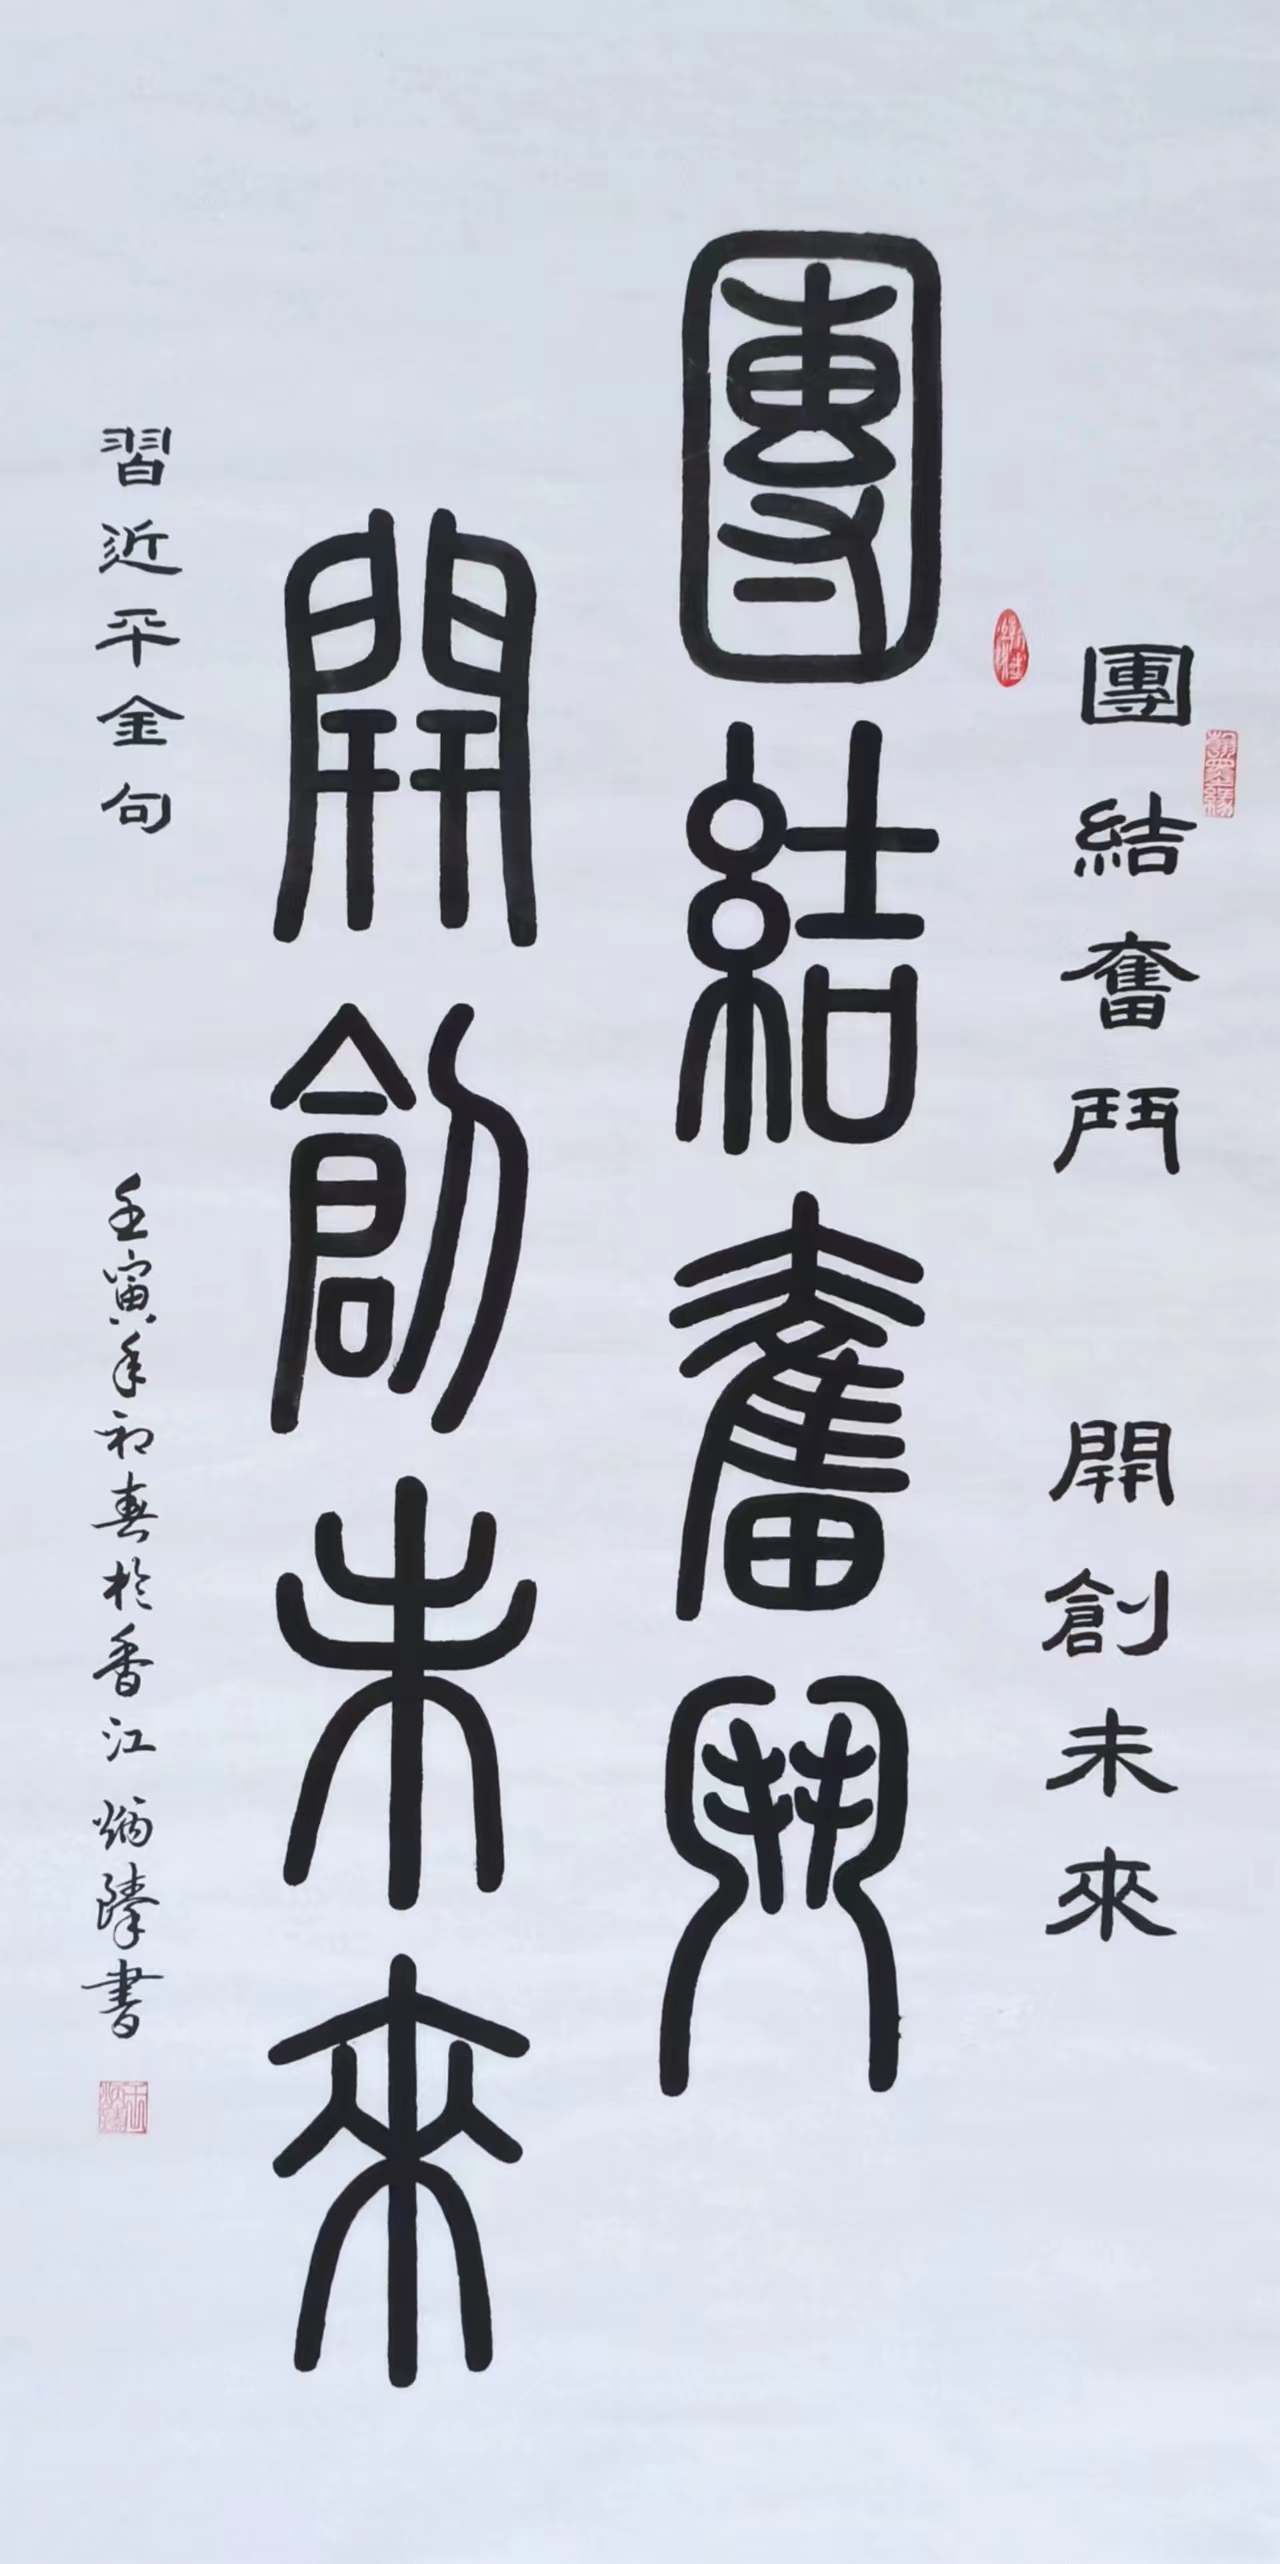 團結奮鬥　開創未來
團結奮鬥
開創未來
習近平金句
壬寅年初春於香江 炳臻書